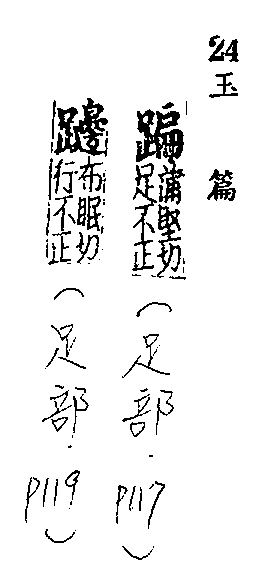 24玉篇
蹁蒲堅切足不正(足部.P117)
躚布眠切行不正(足部.P119)